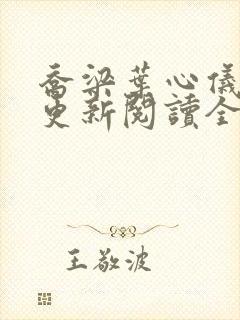 喬梁葉心儀
更新閱讀全
王敬波